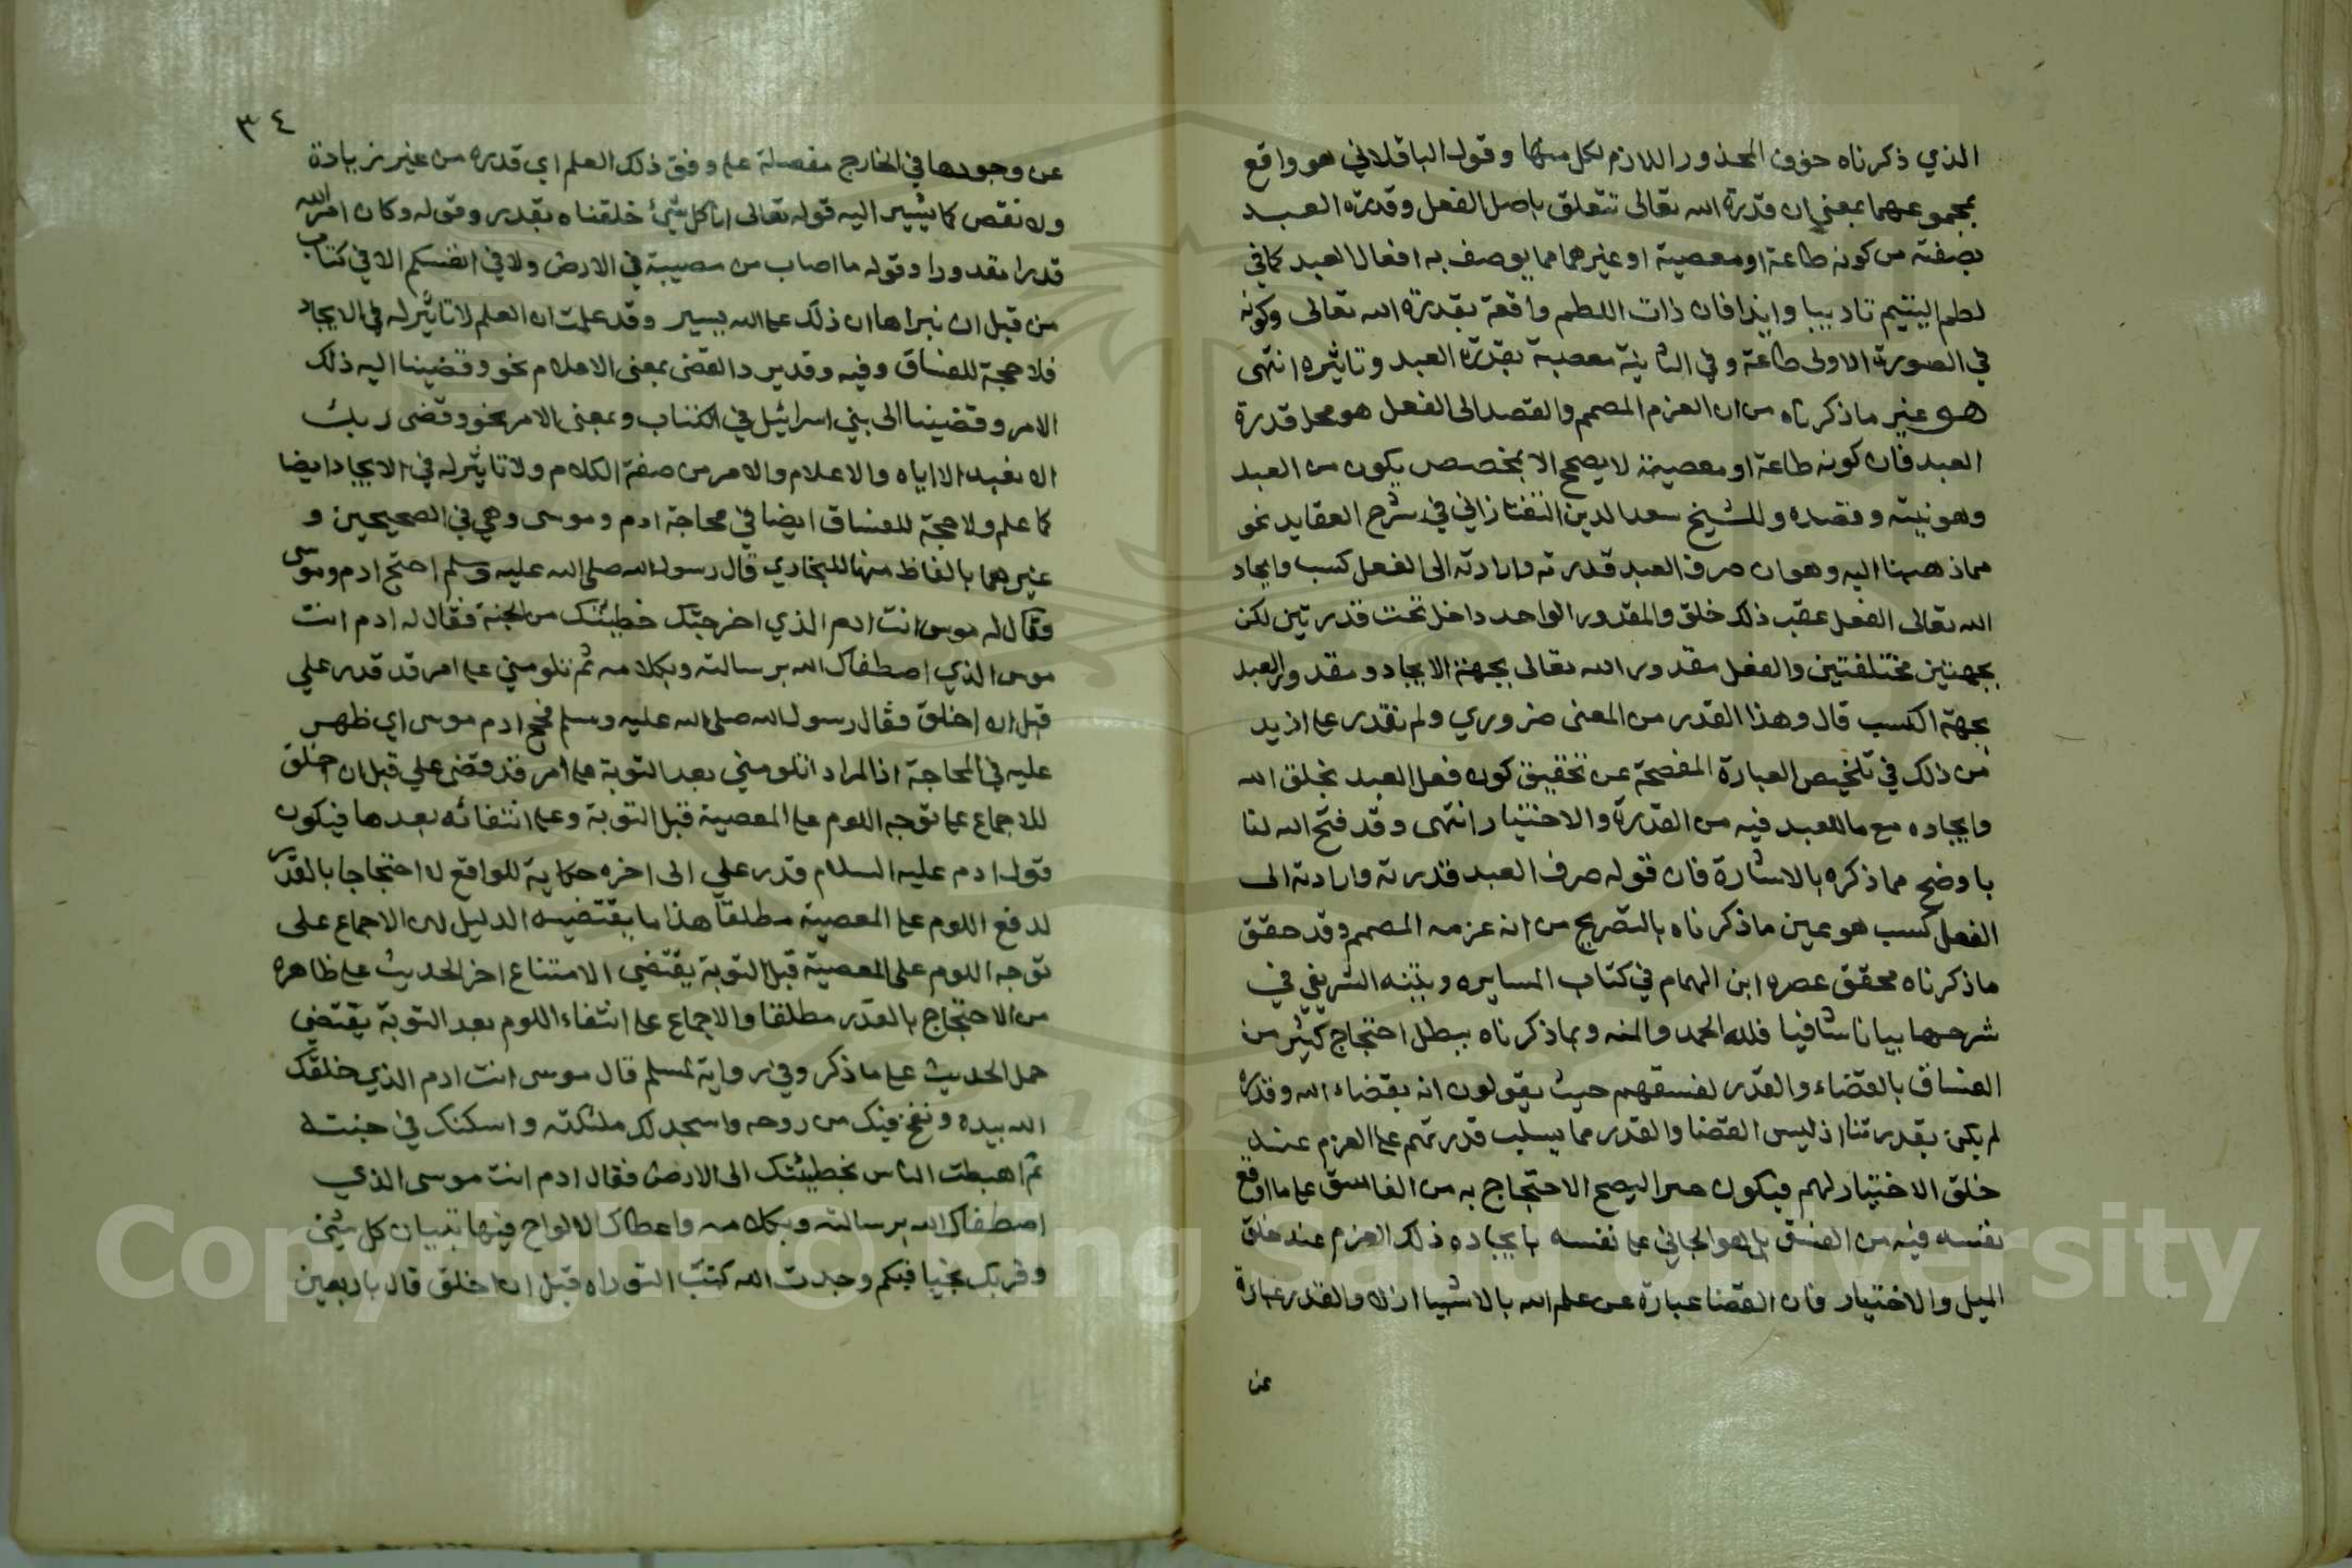 الذي ذكرناه خوف المحذور اللازم لكل منها وقول الباقلاني هو واقع
بمجموعهما بمعنى ان قدرة الله تعالى تتعلق باصل الفعل وقدرة العبد
بصفته من كونه طاعة او معصية او غيرهما مما يوصف به افعال العبد كما في
لطم اليتيم تاديبا وايذا فان ذات اللطم واقعة بقدرة الله تعالى وكونه
في الصورة الاولى طاعة وفي الثانية معصية بقدرة العبد وتاثيره انتهى
هو غير ما ذكرناه من ان العزم المصمم والقصد الى الفعل هو محل قدرة
العبد فان كونه طاعة او معصية لا يصح الا بمخصص يكون من العبد
وهو نيته وقصده وللشيخ سعد الدين التفتازاني في شرح العقايد نحو
مما ذهبنا اليه وهو ان صرف العبد قدرته وارادته الى الفعل كسب وايجاد
الله تعالى الفعل عقب ذلك خلق والمقدور الواحد داخل تحت قدرتين لكن
بجهتين مختلفتين والفعل مقدور الله تعالى بجهة الايجاد ومقدور العبد
بجهة الكسب قال وهذا القدر من المعنى ضروري ولم نقدر على ازيد
من ذلك في تلخيص العبارة المفصحة عن تحقيق كون فعل العبد بخلق الله
وايجاده مع ما للعبد فيه من القدرة والاختيار انتهى وقد فتح الله لنا
باوضح مما ذكره بالاشارة فان قوله صرف العبد قدرته وارادته الى
الفعل كسب هو عين ما ذكرناه بالتصريح من انه عزمه المصمم وقد حقق
ما ذكرناه محقق عصره ابن الهمام في كتاب المسايره وبينه الشريفي في
شرحها بيانا شافيا فلله الحمد والمنه وبما ذكرناه يبطل احتجاج كثير من
الفساق بالقضاء والقدر لفسقهم حيث يقولون انه بقضاء الله وقدره
لم يكن بقدرتنا اذ ليس القضا والقدر مما يسلب قدرتهم على العزم عند
خلق الاختيار لهم فيكون جبرا ليصح الاحتجاج به من الفاسق على ما اوقع
نفسه فيه من الفسق بل هو الجاني على نفسه بايجاده ذلك العزم عند خلق
الميل والاختيار فان القضا عبارة عن علم الله بالاشيا ازلا والقدر عبارة
عن
٣٤
عن وجودها في الخارج مفصلة على وفق ذلك العلم اي قدره من غير زيادة
ولا نقص كما يشير اليه قوله تعالى انا كل شئ خلقناه بقدر وقوله وكان امر الله
قدرا مقدورا وقوله ما اصاب من مصيبة في الارض ولا في انفسكم الا في كتاب
من قبل ان نبراها ان ذلك على الله يسير وقد علمت ان العلم لا تاثير له في الايجاد
فلا حجة للفساق وفيه وقد يرد القضى بمعنى الاعلام نحو وقضينا اليه ذلك
الامر وقضينا الى بني اسرائيل في الكتاب وبمعنى الامر نحو وقضى ربك
الا تعبدوا الا اياه والاعلام والامر من صفة الكلام ولا تاثير له في الايجاد ايضا
كما علم ولا حجة للفساق ايضا في محاجة ادم وموسى وهي في الصحيحين و
غيرهما بالفاظ منها للبخاري قال رسول الله صلى الله عليه وسلم احتج ادم وموسى
فقال له موسى انت ادم الذي اخرجتك خطيئتك من الجنة فقال له ادم انت
موسى الذي اصطفاك الله برسالته وبكلامه ثم تلومني على امر قد قدر علي
قبل ان اخلق فقال رسول الله صلى الله عليه وسلم فحج ادم موسى اي ظهر
عليه في المحاجة اذ المراد اتلومني بعد التوبة على امر قد قضى علي قبل ان اخلق
للاجماع على توجه اللوم على المعصية قبل التوبة وعلى انتفائه بعدها فيكون
قول ادم عليه السلام قدر علي الى اخره حكاية للواقع لا احتجاجا بالقدر
لدفع اللوم على المعصية مطلقا هذا ما يقتضيه الدليل لان الاجماع على
توجه اللوم على المعصية قبل التوبة يقتضي الامتناع اخر الحديث على ظاهره
من الاحتجاج بالقدر مطلقا والاجماع على انتفاء اللوم بعد التوبة يقتضي
حمل الحديث على ما ذكر وفي رواية لمسلم قال موسى انت ادم الذي خلقك
الله بيده ونفخ فيك من روحه واسجد لك ملئكته واسكنك في جنته
ثم اهبطت الناس بخطيئتك الى الارض فقال ادم انت موسى الذي
اصطفاك الله برسالته وبكلامه واعطاك الالواح فيها تبيان كل شئ
وقربك نجيا فبكم وجدت الله كتب التوراه قبل ان اخلق قال باربعين
Copyright © King Saud University